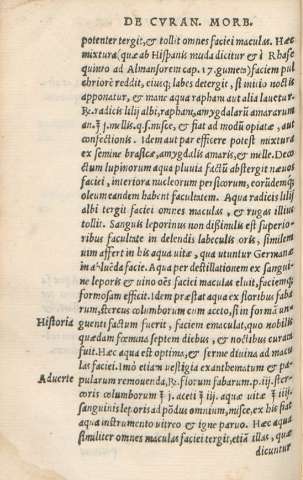 DE CVRAN. MORB.
potenter tergit, & tollit omnes faciei maculas. Hæc
mixtura (quæ ab Hispanis muda dicitur & à Rhase
quinto ad Almansorem cap. 17. gumem) faciem pul
chriorẽ reddit, eiusq; labes detergit, si initio noctis
apponatur, & mane aqua raphani aut alia lavetur.
℞. radicis lilij albi, raphani, amygdalarũ amararum
an. ℥ j. mellis. q. s. misce, & fiat ad modũ opiatæ, aut
confectionis. Idem aut par efficere potest mixtura
ex semine brasicæ, amygdalis amaris, & melle. Deco
ctum lupinorum aqua pluvia factũ abstergit nævos
faciei, interiora nucleorum persicorum, eorũdemq;
oleum eandem habent facultatem. Aqua radicis lilij
albi tergit faciei omnes maculas, & rugas illius
tollit. Sanguis leporinus non dißimilis est superio-
ribus facultate in delendis labeculis oris, similem
um affert in his aqua vitæ, qua utuntur Germanæ
in abluẽda facie. Aqua per destillationem ex sangui-
ne leporis & uino oẽs faciei maculas eluit, faciemq;
formosam efficit. Idem præstat aqua ex floribus faba
rum, stercus columborum cum aceto, si in formã un-
Historia guenti factum fuerit, faciem emaculat, quo nobilis
quædam fœmina septem diebus, & noctibus curata
fuit. Hæc aqua est optima, & ferme divina ad macu
las faciei. Imò etiam vestigia exanthematum & pa-
Adverte pularum removenda, ℞. florum fabarum. p. iij. ster-
coris columborum ℥ j. aceti ℥ iij. aquæ vitæ ℥ iiij.
sanguinis leporis ad põdus omnium, misce, ex his fiat
aqua instrumento vitreo & igne parvo. Hæc aqua
similiter omnes maculas faciei tergit, etiã illas, quæ
dicuntur